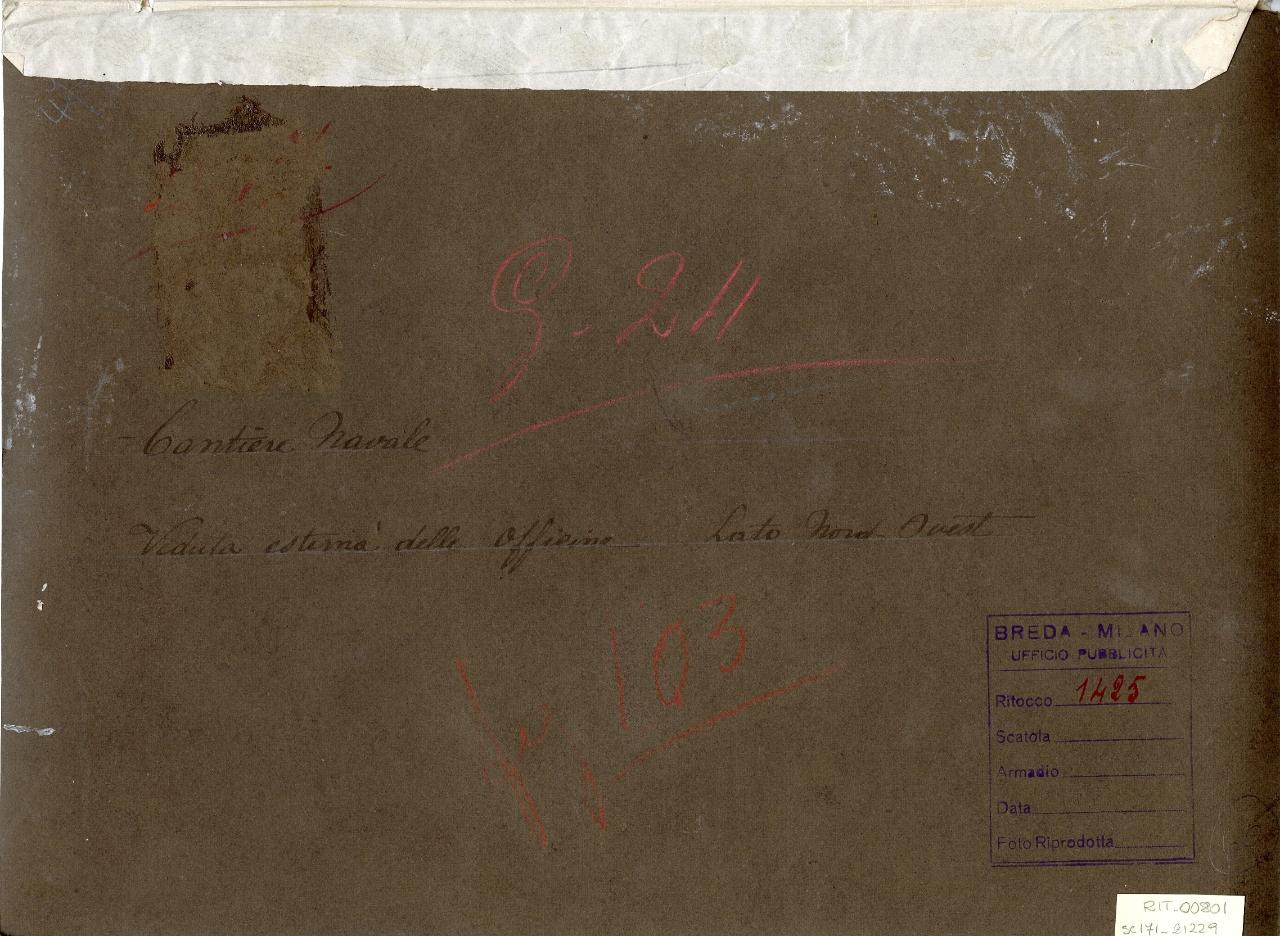 G. 24
- Cantiere Navale
Veduta esterna delle Officine Lato Nord Ovest
103
BREDA - MILANO
UFFICIO PUBBLICITÀ
Ritocco 1425
Scatola
Armadio
Data
Foto Riprodotta
RIT_00801
SC171_21229